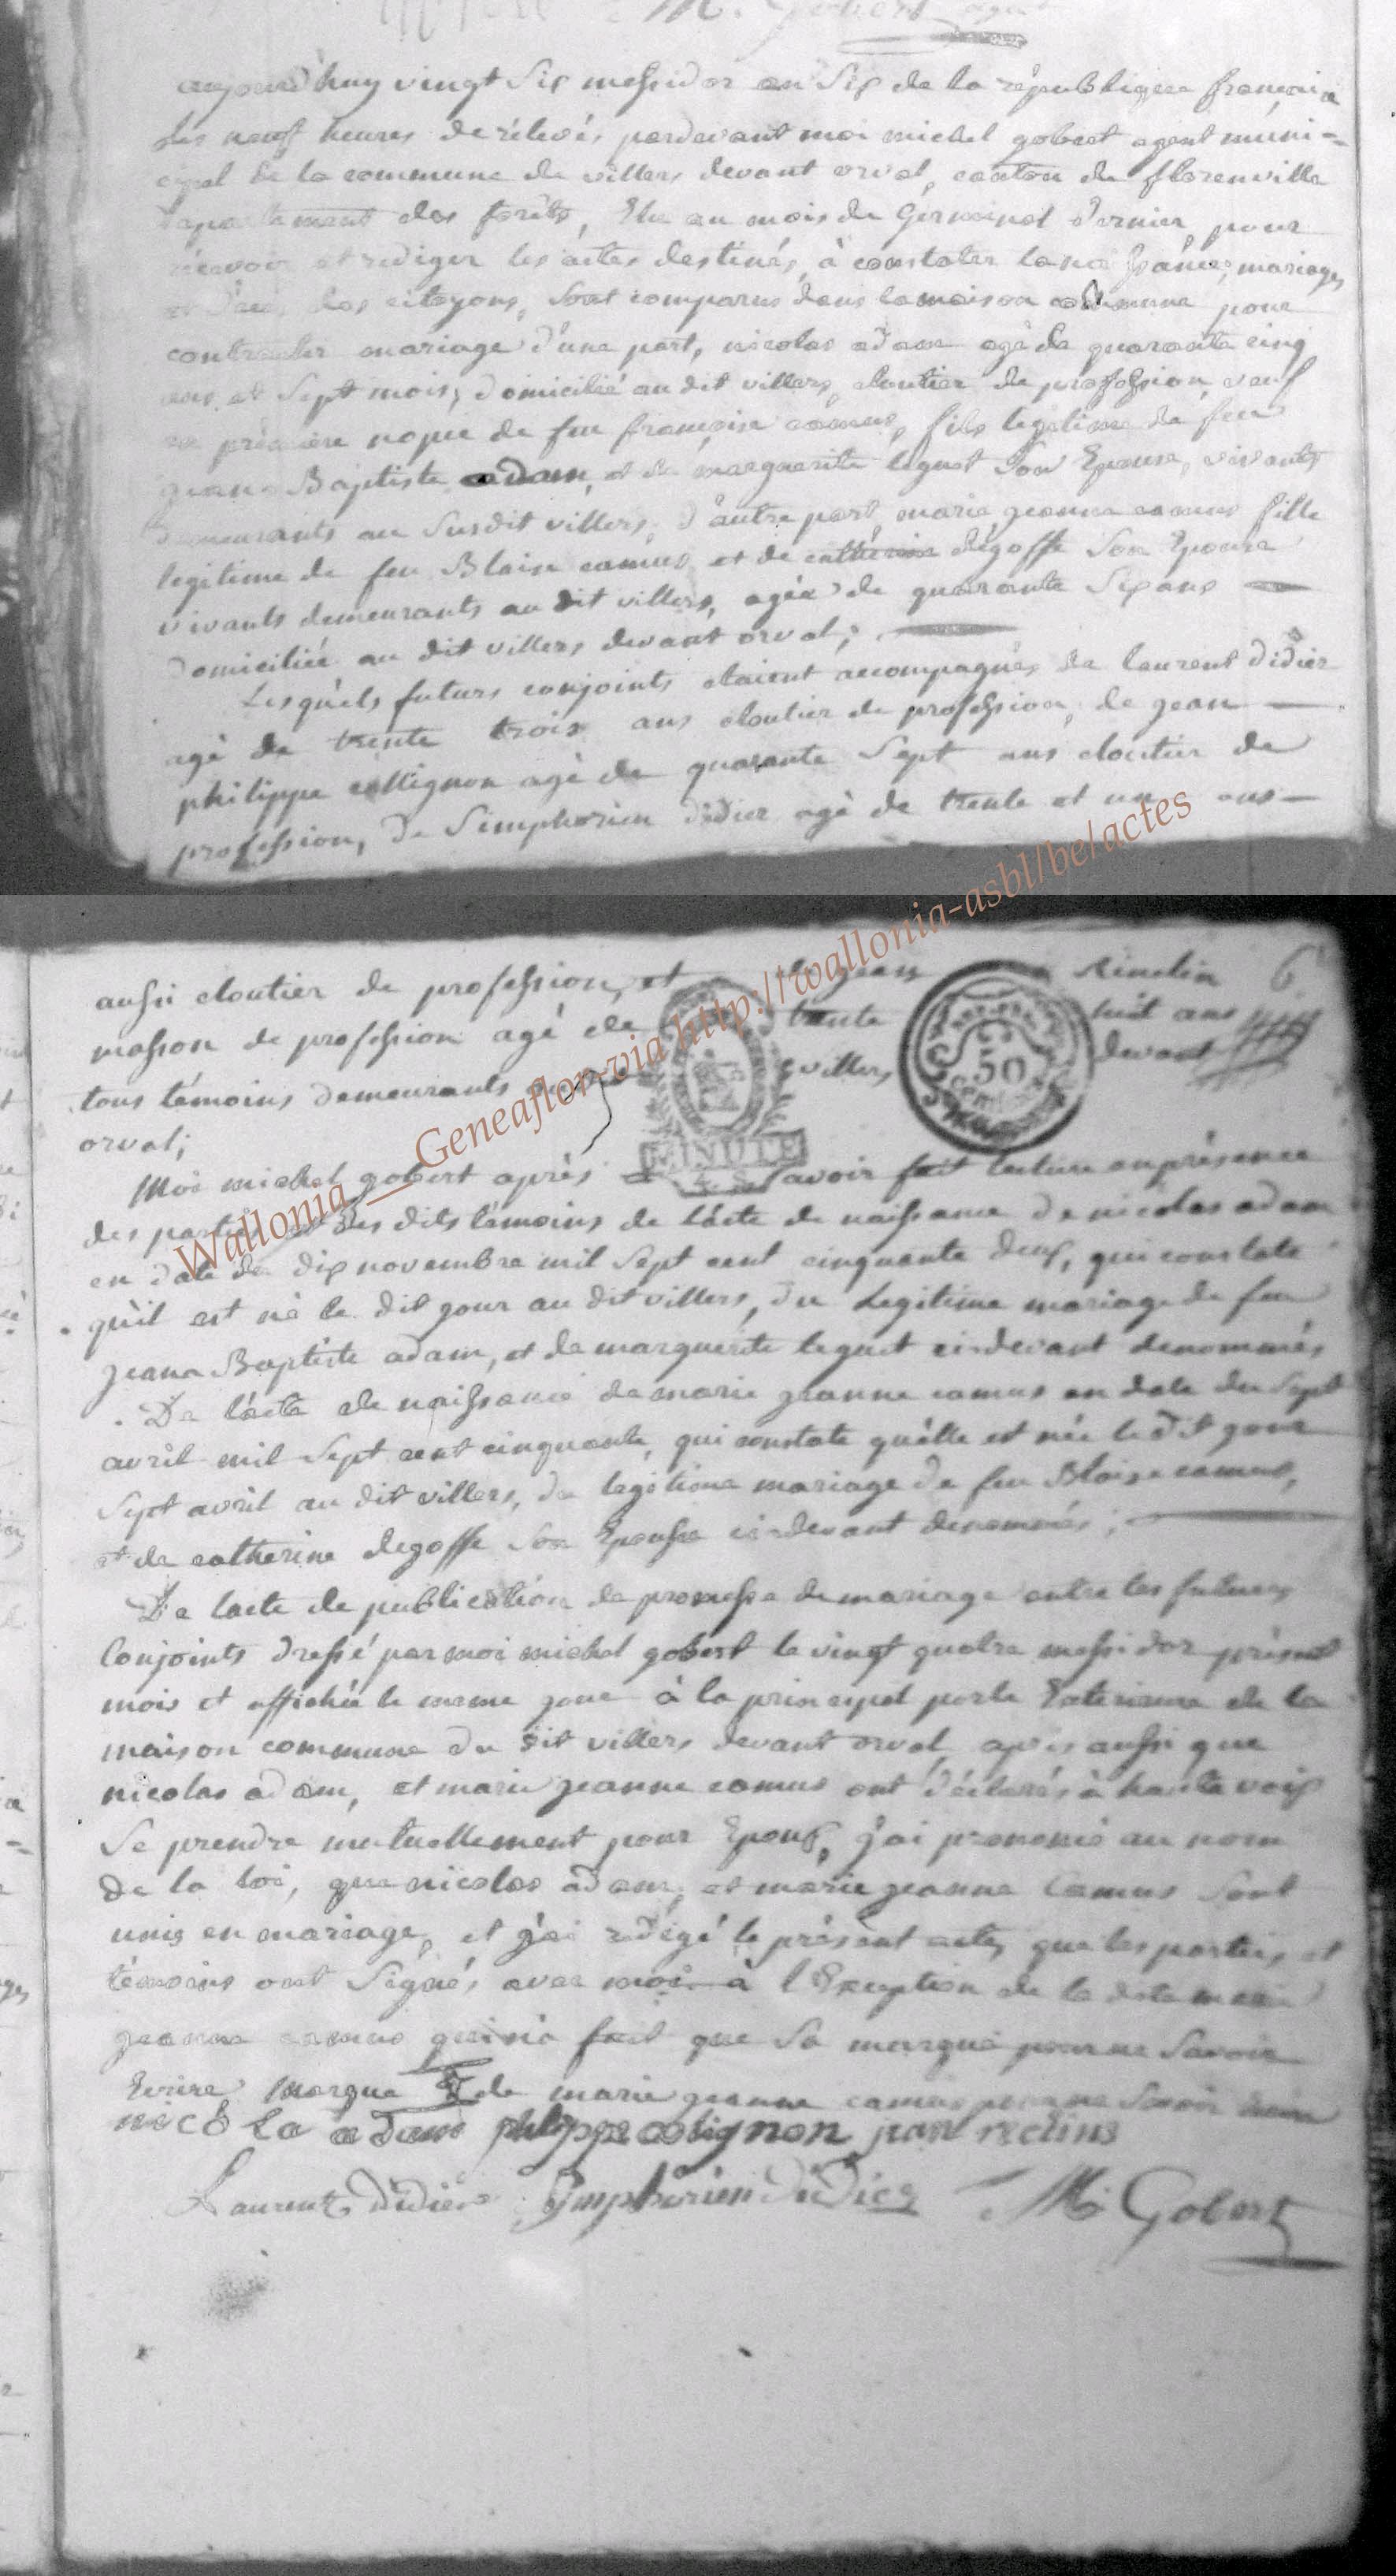 M. Gobert agent
aujourd'huy vingt Six messidor an Six de la république françoise
les neuf heures de rélevés pardevant moi michel gobert agent muni=
cipal de la commune de villers devant orval, canton de florenville
departement des forêts, Elu au mois de Germinal dernier, pour
récevoir et rediger les actes destinés, à constater la naissance, mariages
et décès des citoyens, Sont comparus dans la maison commune pour
contracter mariage d'une part, nicolas adam agé de quarante cinq
ans et Sept mois, domicilié au dit villers, cloutier de profession, veuf
en première nopce de feu françoise camus, fils legitime de feu
jean Baptiste adam, et de marguerite leguet Son Epouse, vivants
demeurants au Susdit villers, d'autre part, marie jeanne camus fille
legitime de feu Blaise camus et de catherine degoffe Son Epouse
vivants demeurants au dit villers, agée de quarante Six ans
domiciliée au dit villers devant orval;
Lesquels futurs conjoints etaient accompagnés de laurent didier
agé de trente trois ans cloutier de profession, de jean
philippe collignon agé de quarante Sept ans cloutier de
profession, de Simphorien didier agé de trente et un ans
aussi cloutier de profession, et de jean 6
masson de profession agé de trente huit ans
tous témoins demeurants villers devant
orval;
Moi michel gobert après avoir fait lecture en présence
des parties et des dits témoins de l'acte de naissance de nicolas adam
en date du dix novembre mil Sept cent cinquante deux, qui constate
qu'il est né le dit jour au dit villers, du Legitime mariage de feu
jean Baptiste adam, et de marguerite leguet cidevant denommés
De l'acte de naissance de marie jeanne camus en date du Sept
avril mil Sept cent cinquante, qui constate qu'elle est née le dit jour
Sept avril au dit villers, du legitime mariage de feu Blaise camus,
et de catherine degoffe Son Epouse cidevant denommés;
De lacte de publication de promesse de mariage entre les futures
Conjoints dressé par moi michel gobert le vingt quatre messidor présent
mois et affichée le meme jour à la principal porte Exterieure de la
maison commune du dit villers devant orval, apres aussi que
nicolas adam, et marie jeanne camus ont déclarés à haute voix
Se prendre mutuellement pour Epoux, j'ai prononcé au nom
de la loi, que nicolas adam, et marie jeanne Camus Sont
unis en mariage, et j'ai rédigé le présent acte, que les parties, et
témoins ont Signés avec moi à l'Exception de la dite marie
jeanne camus qui n'a fait que Sa marque pour ne Savoir
Ecrire marque de marie jeanne camus pour ne Savoir
nicola adam philippe colignon jean
Laurent didier Symphorien didier M. Gobert
MINUTE
50
Wallonia__Geneaflor via http://wallonia-asbl/be/actes